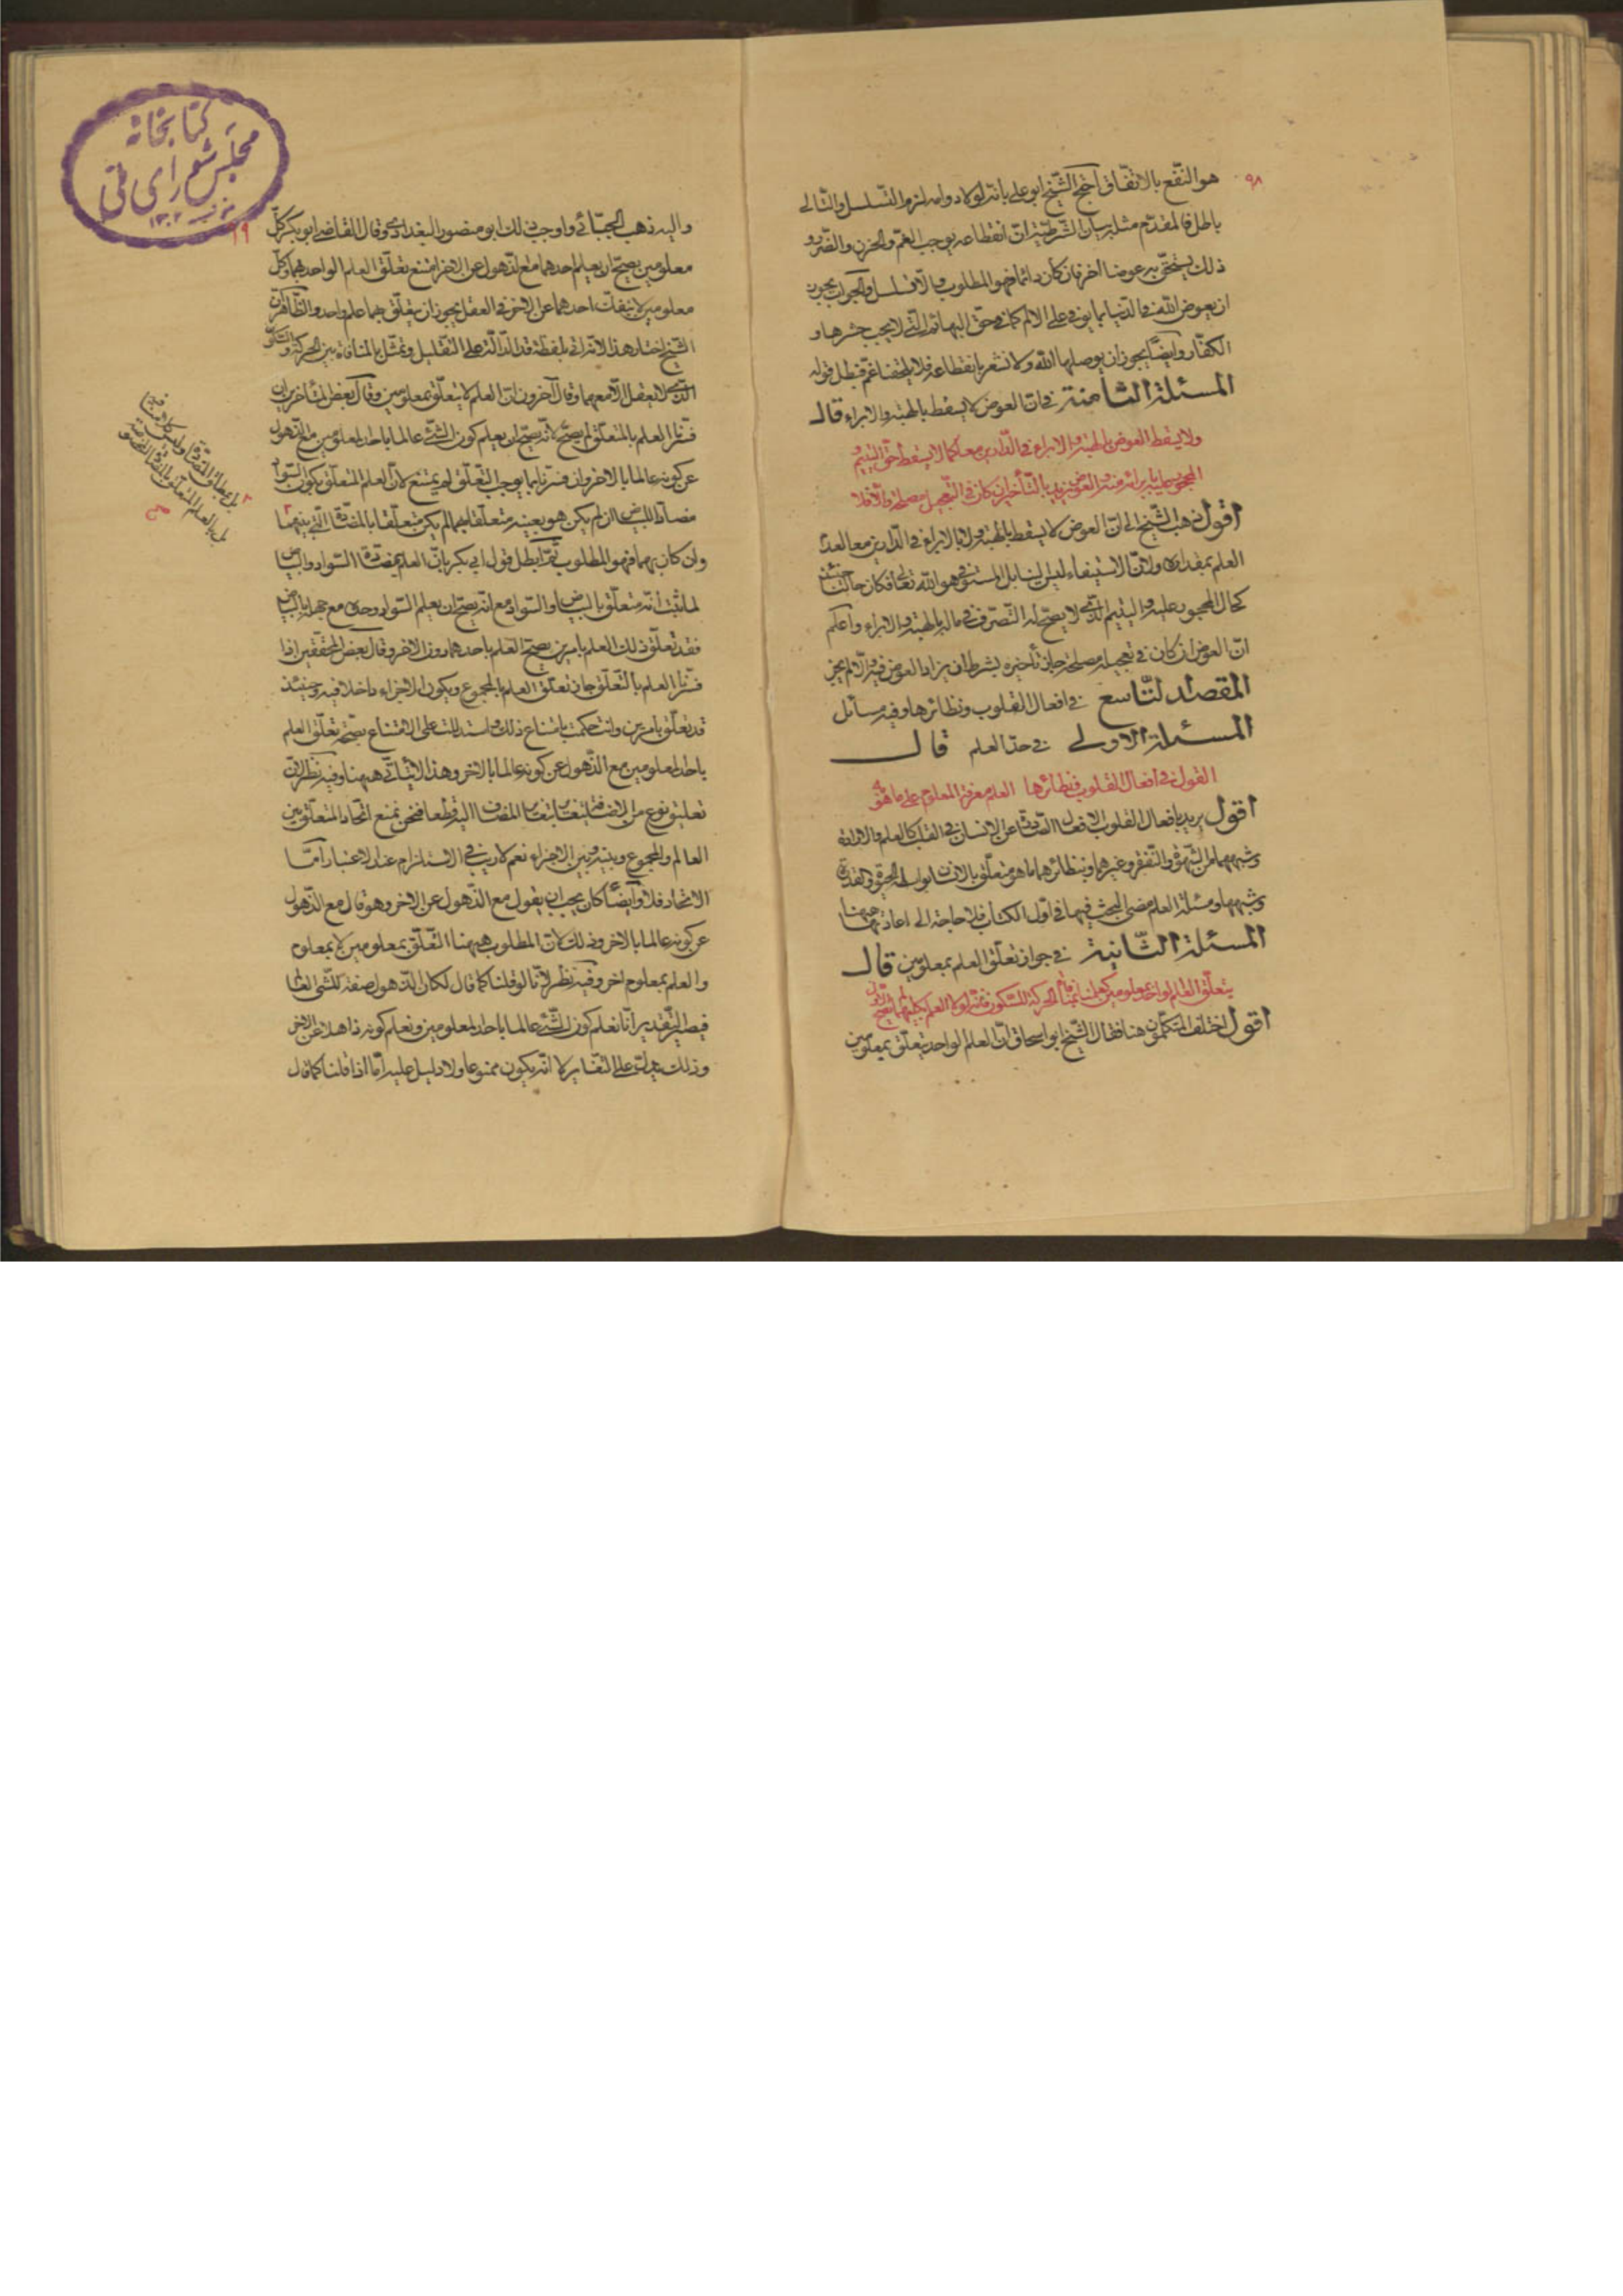 ٩٨
هو النّفع بالاتّفاق احتجّ الشّيخ ابو على بانّه لولا دوامه لزم التّسلسل والتّالى
باطل فالمقدّم مثله بيان الشّرطيّة انّ انقطاعه يوجب الغمّ والحزن والضّرر و
ذلك يستحقّ به عوضا اخر فان كان دائما فهو المطلوب والّا تسلسل والجواب يجوز
ان يعوض الله فى الدّنيا بما يوفى على الالم كما فى حقّ البهائم الّتى لا يجب حشرها و
الكفّار وايضا يجوز ان يوصلها الله ولا نشعر بانقطاعه فلا يلحقنا غم فبطل قوله
المسئلة الثّامنة فى انّ العوض لا يسقط بالهبة والابراء قال
ولا يسقط العوض بالهبة والابراء فى الدّارين معا كما لا يسقط حقّ اليتيم و
المحجور عليه بابرائه منه والعوض يزيد بالتّأخير ان كان فى التّعجيل مصلحة والّا فلا
اقول ذهب الشّيخ الى انّ العوض لا يسقط بالهبة ولا بالابراء فى الدّارين معا لعدم
العلم بمقداره ولانّ الاستيفاء ليس لنا بل المستوفى هو الله تعالى فكان حالنا حينئذ
كحال المحجور عليه واليتيم الّذى لا يصحّ له التّصرّف فى ماله بالهبة والابراء واعلم
انّ العوض ان كان فى تعجيله مصلحة جاز تأخيره بشرط ان يزاد العوض فيه والّا لم يجز
المقصد التّاسع فى افعال القلوب ونظائرها وفيه مسائل
المسئلة الاولى فى حدّ العلم قال
القول فى افعال القلوب ونظائرها العلم معرفة المعلوم على ما هو به
اقول يريد بافعال القلوب الافعال الصّادرة عن الانسان فى القلب كالعلم والارادة
وشبههما من الشّهوة والنّفرة وغيرهما وبنظائرها ما هو متعلّق بالانسان بواسطة الحيوة والقدرة
وشبهها ومسئلة العلم مضى البحث فيها فى اوّل الكتاب فلا حاجة الى اعادتها هيهنا
المسئلة الثّانية فى جواز تعلّق العلم بمعلومين قال
يتعلّق العلم الواحد بمعلومين كعلمنا بمنافاة الحركة للسّكون فانّه لولا العلم بكليهما لم يصحّ
اقول اختلف المتكلّمون هنا فقال الشّيخ ابو اسحاق انّ العلم الواحد يتعلّق بمعلومين
كتابخانه
مجلس شوراى ملّى
٩٩
واليه ذهب الجبّائى واوجب ذلك ابو منصور البغدادى وقال القاضى ابو بكر كلّ
معلومين يصحّ ان يعلم احدهما مع الذّهول عن الاخر امتنع تعلّق العلم الواحد بهما وكلّ
معلومين لا ينفكّ احدهما عن الاخر فى العقل يجوز ان يتعلّق بهما علم واحد والظّاهر انّ
الشّيخ اختار هذا لانّه اتى بلفظة قد الدّالّة على التّقليل وتمثّل بالمنافاة بين الحركة والسّكون
الّذى لا يعقل الّا معهما وقال آخرون انّ العلم لا يتعلّق بمعلومين وقال بعض المتأخّرين ان
فسّرنا العلم بالمتعلّق لم يصحّ لانّه يصحّ ان يعلم كون الشّئ عالما باحد المعلومين مع الذّهول
عن كونه عالما بالاخر وان فسّرناه بما يوجب التّعلّق لم يمتنع لانّ العلم المتعلّق بكون السّواد
مضادّا للبياض ان لم يكن هو بعينه متعلّقا بهما لم يكن متعلّقا بالمضادّة الّتى بينهما
وان كان بهما فهو المطلوب ثمّ ابطل قول ابى بكر بانّ العلم بمضادّة السّواد والبياض
لما ثبت انّه متعلّق بالبياض والسّواد مع انّه يصحّ ان يعلم السّواد وحده مع جهله بالبياض
فقد تعلّق ذلك العلم بامرين يصحّ العلم باحدهما دون الاخر وقال بعض المحقّقين اذا
فسّرنا العلم بالتّعلّق جاز تعلّق العلم بالمجموع ويكون الاجزاء داخلا فيه وحينئذ
قد تعلّق بامرين وانت حكمت بامتناع ذلك واستدللت على الامتناع بصحّة تعلّق العلم
باحد المعلومين مع الذّهول عن كونه عالما بالاخر وهذا لا يتأتّى هيهنا وفيه نظر لانّ
تعليق نوع من الاضافة يتغاير بتغاير المضاف اليه قطعا فنحن نمنع اتّحاد المتعلّق بين
العالم والمجموع وبينه وبين الاجزاء نعم لا ريب فى الاستلزام عند الاعتبار امّا
الاتّحاد فلا وايضا كان يجب ان يقول مع الذّهول عن الاخر وهو قال مع الذّهول
عن كونه عالما بالاخر وذلك لانّ المطلوب هيهنا التّعلّق بمعلومين لا بمعلوم
والعلم بمعلوم اخر وفيه نظر لانّا لو قلنا كما قال لكان الذّهول صفة للشّئ العالم
فيصير التّقدير انّا نعلم كون الشّئ عالما باحد المعلومين ونعلم كونه ذاهلا عن الاخر
وذلك يدلّ على التّغاير لا انّه يكون ممنوعا ولا دليل عليه امّا اذا قلنا كما قال